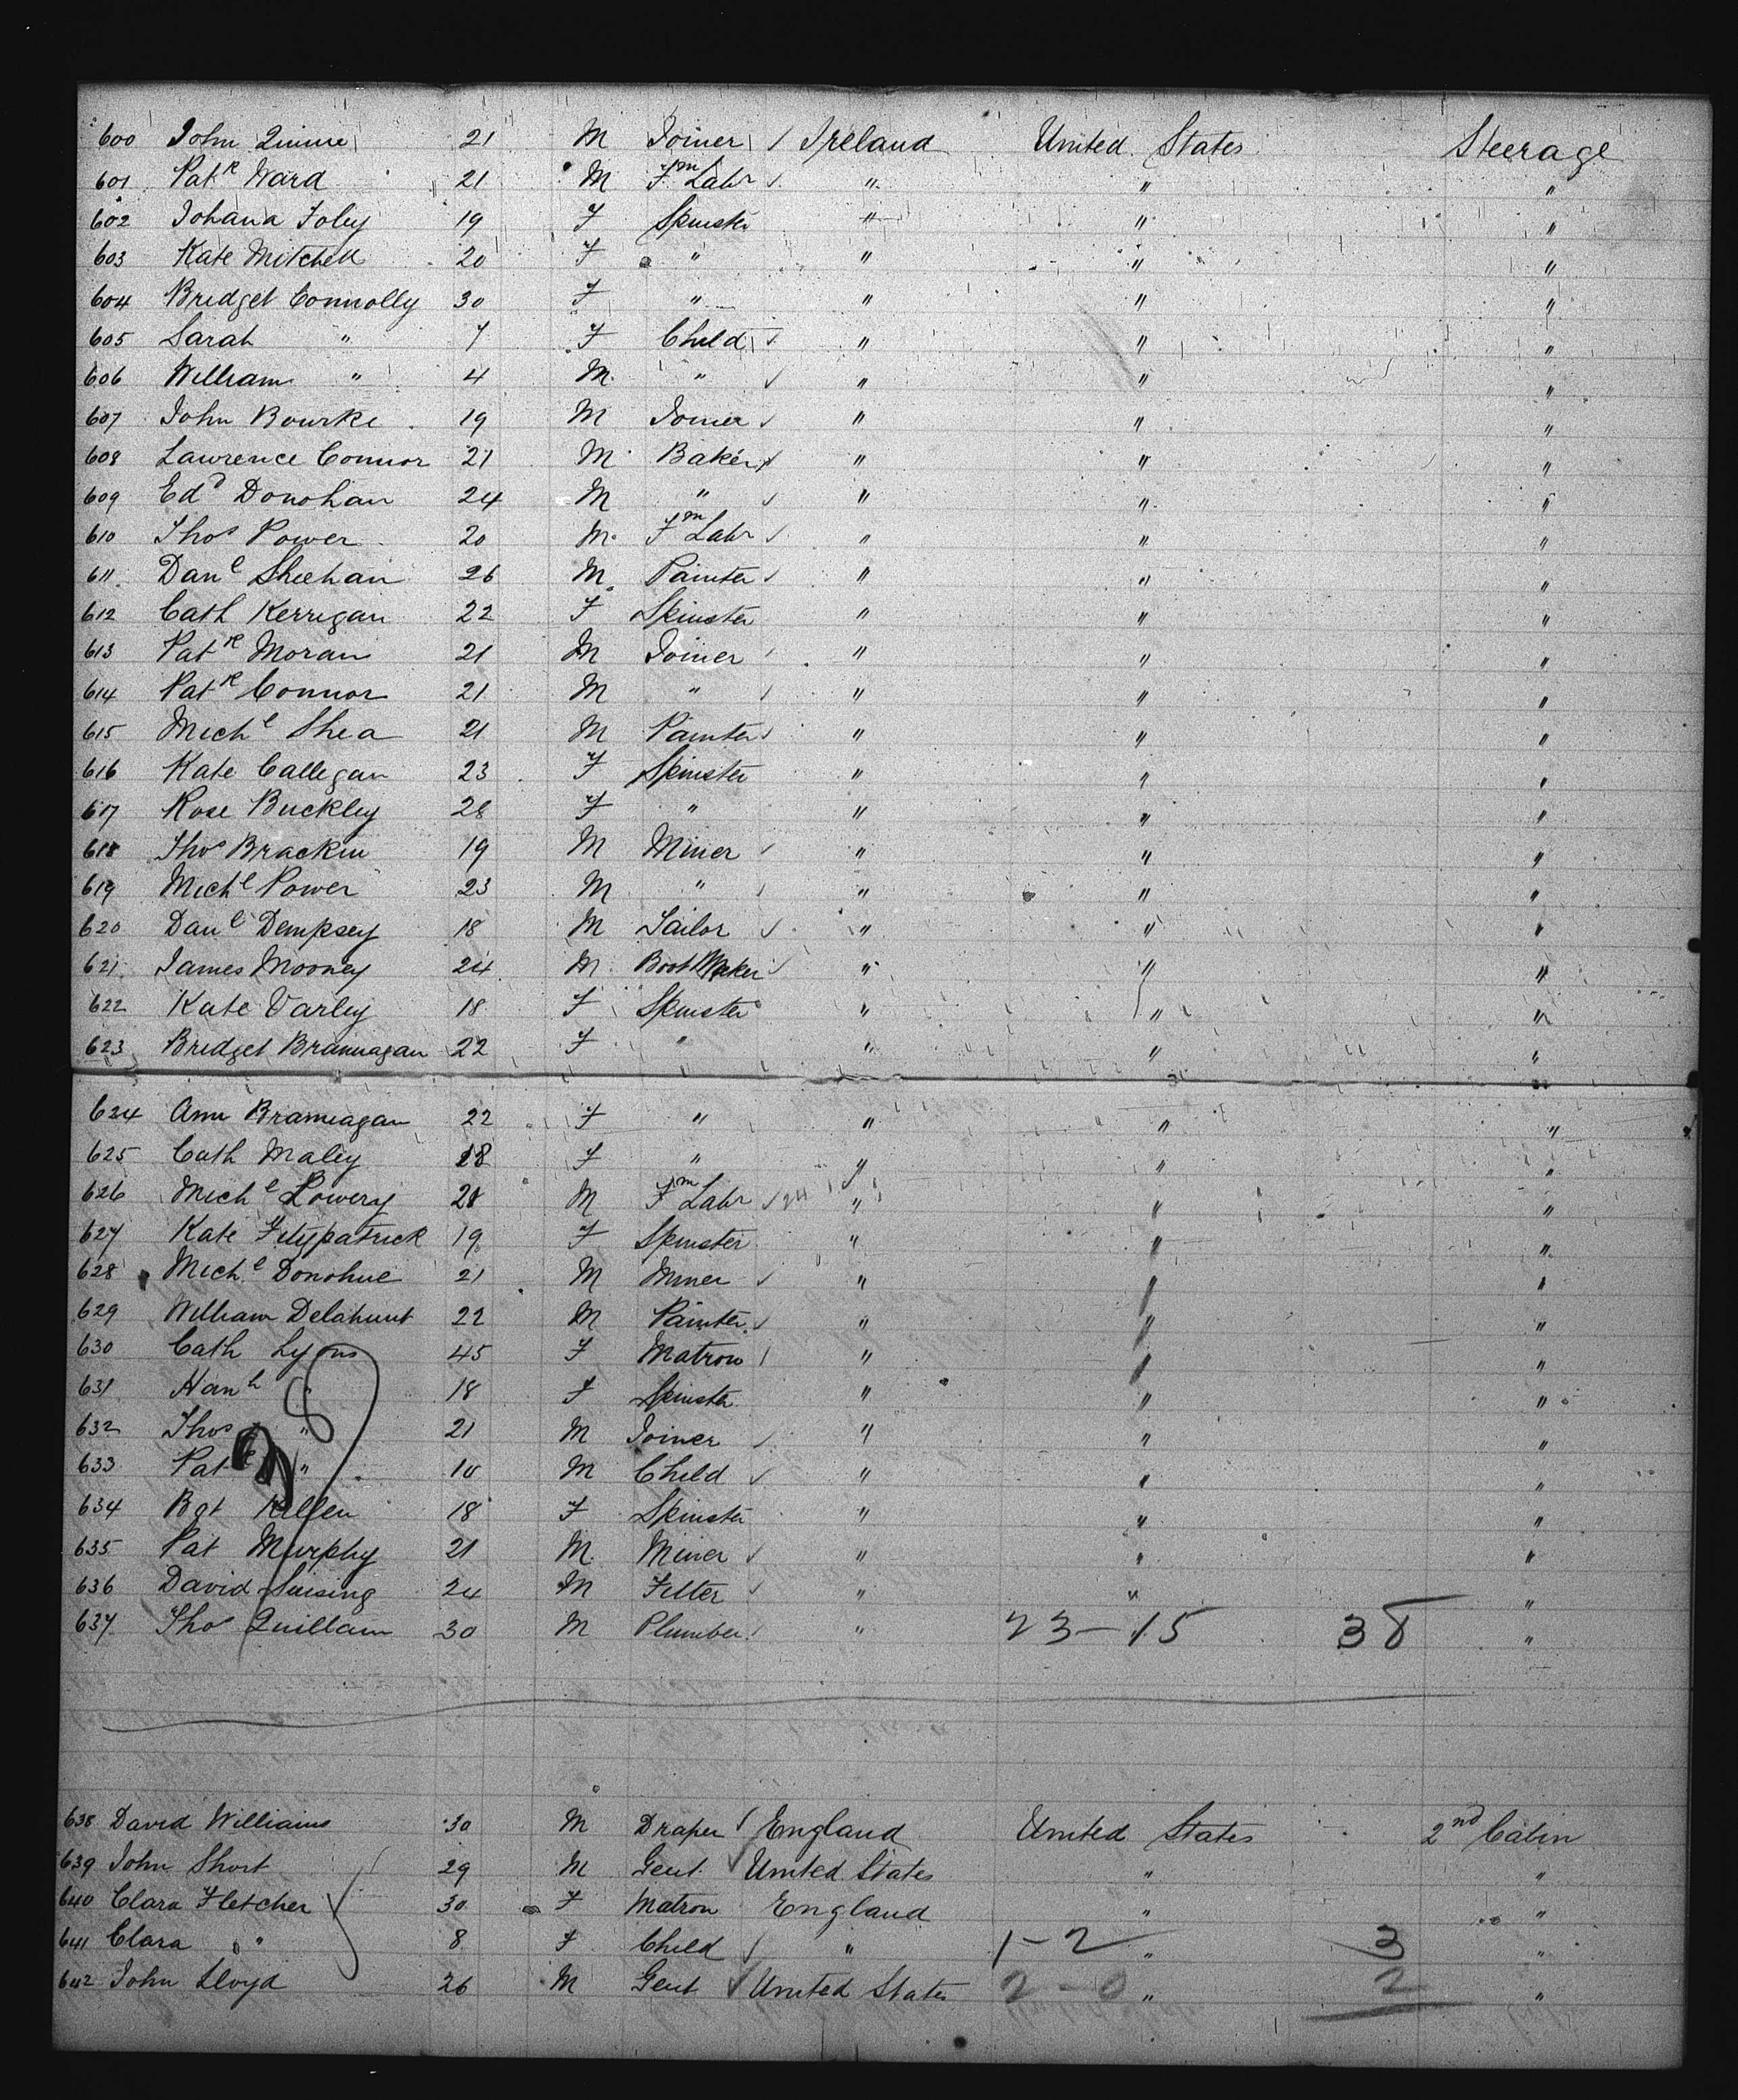 600 John Quinne 21 M Joiner Ireland United States Steerage
601 Patk Ward 21 M Fm Labr " " "
602 Johana Foley 19 F Spinster " " "
603 Kate Mitchell 20 F " " " "
604 Bridget Connolly 30 F " " " "
605 Sarah " 7 F Child " " "
606 William " 4 M " " " "
607 John Bourke 19 M Joiner " " "
608 Lawrence Connor 21 M Baker " " "
609 Edd Donohan 24 M " " " "
610 Thos Power 20 M Fm Labr " " "
611 Danl Sheehan 26 M Painter " " "
612 Cath Kerrigan 22 F Spinster " " "
613 Patk Moran 21 M Joiner " " "
614 Patk Connor 21 M " " " "
615 Michl Shea 21 M Painter " " "
616 Kate Callegan 23 F Spinster " " "
617 Rose Buckley 28 F " " " "
618 Thos Brackin 19 M Miner " " "
619 Michl Power 23 M " " " "
620 Danl Dempsey 18 M Tailor " " "
621 James Mooney 24 M Boot Maker " " "
622 Kate Varley 18 F Spinster " " "
623 Bridget Brannagan 22 F " " " "
624 Ann Brannagan 22 F " " " "
625 Cath Maley 18 F " " " "
626 Michl Lowery 28 M Fm Labr 24 " " "
627 Kate Fitzpatrick 19 F Spinster " " "
628 Michl Donohue 21 M Miner " " "
629 William Delahunt 22 M Painter " " "
630 Cath Lyons 45 F Matron " " "
631 Hanh " 18 F Spinster " " "
632 Thos " 21 M Joiner " " "
633 Patk " 10 M Child " " "
634 Bgt Killen 18 F Spinster " " "
635 Pat Murphy 21 M Miner " " "
636 David 24 M Fitter " " "
637 Thos Quillam 30 M Plumber " 23-15 " 38 "
638 David Williams 30 M Draper England United States 2nd Cabin
639 John Short 29 M Gent United States " "
640 Clara Fletcher 30 F Matron England " "
641 Clara " 8 F Child " 1-2 " 3 "
642 John Lloyd 26 M Gent United States 2-0 " 2 "